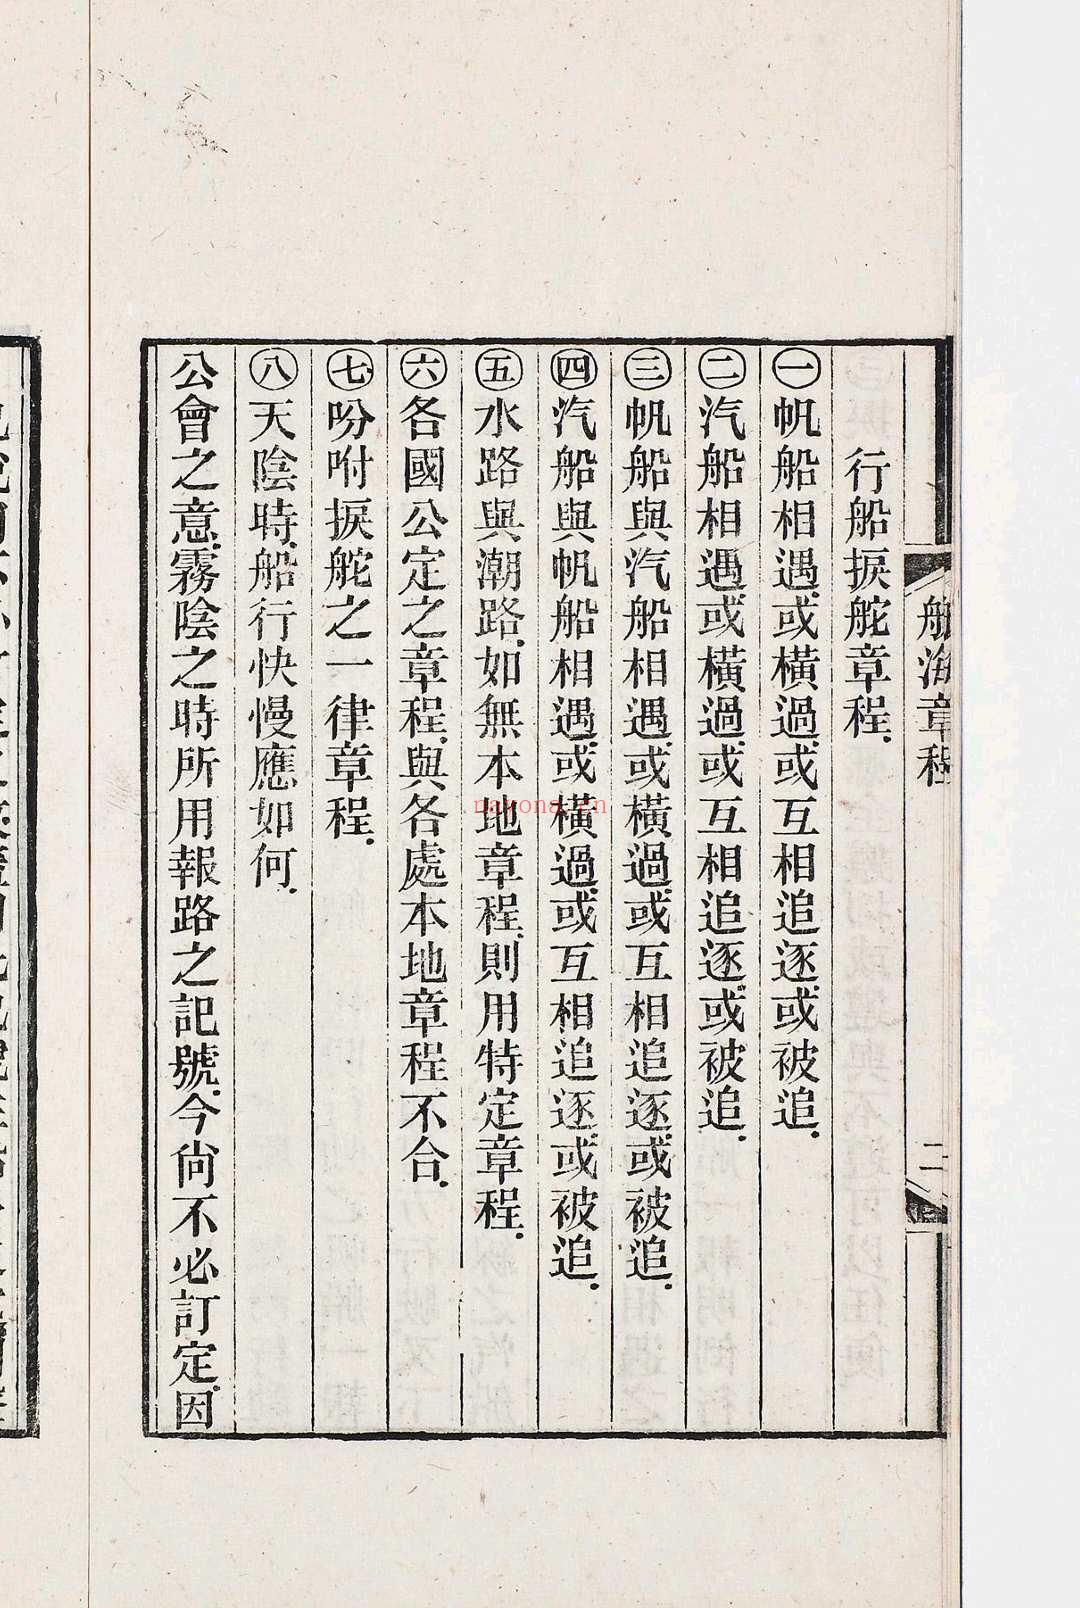 航海章程
二
行船捩舵章程.
㊀帆船相遇.或橫過.或互相追逐.或被追.
㊁汽船相遇.或橫過.或互相追逐.或被追.
㊂帆船與汽船相遇.或橫過.或互相追逐.或被追.
㊃汽船與帆船相遇.或橫過.或互相追逐.或被追.
㊄水路與潮路.如無本地章程.則用特定章程.
㊅各國公定之章程.與各處本地章程不合.
㊆吩咐捩舵之一律章程.
㊇天陰時.船行快慢應如何.
公會之意.霧陰之時所用報路之記號.今尙不必訂定.因
nayona.cn